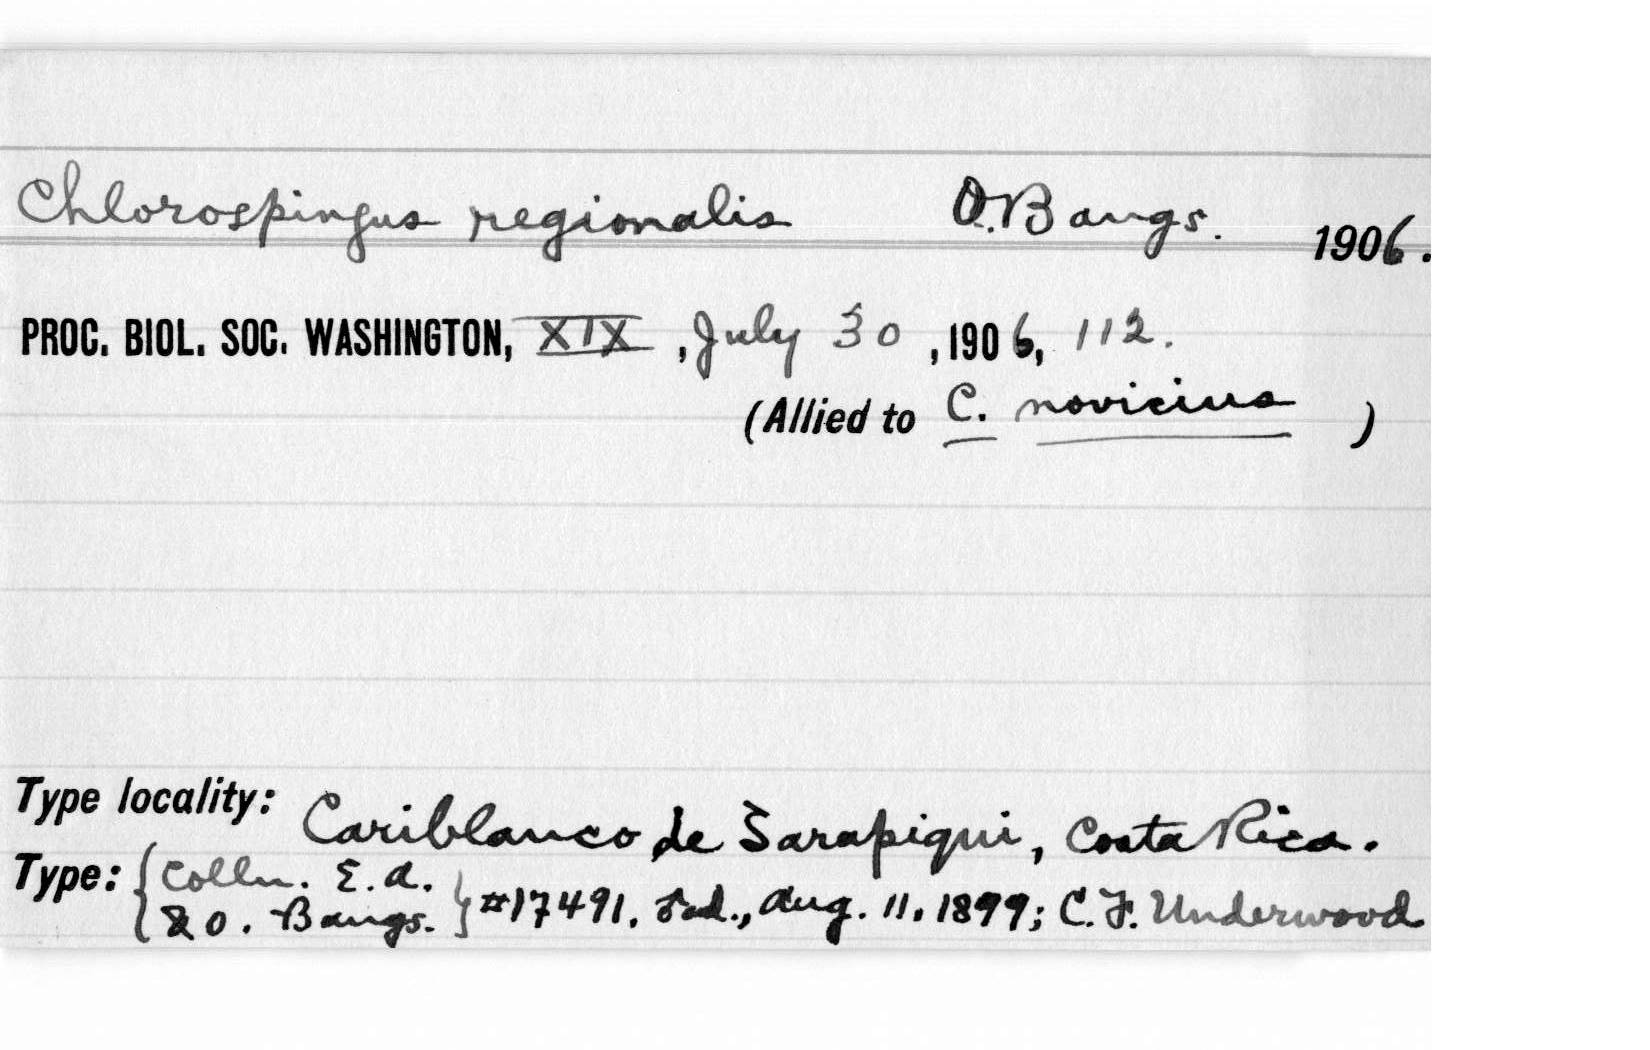 Chlorospingus regionalis O. Bangs. 1906.
PROC. BIOL. SOC. WASHINGTON, XIX, July 30, 1906, 112.
(Allied to C. novicius )
Type locality: Cariblanco de Sarapiqui, Costa Rica.
Type: { Colln. E. A.
& O. Bangs. } #17491. ♂ad., Aug. 11, 1899; C. F. Underwood